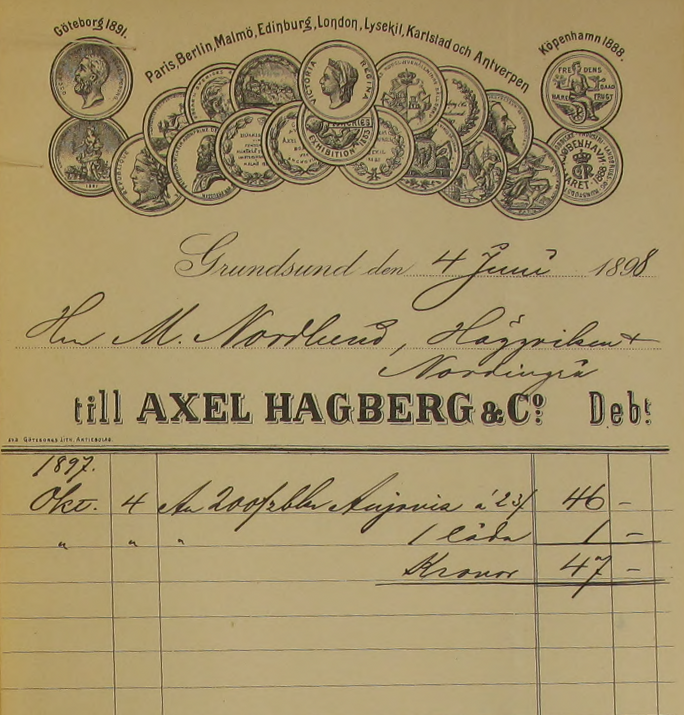 Göteborg 1891.
Paris, Berlin, Malmö, Edinburg, London, Lysekil, Karlstad och Antwerpen
Köpenhamn 1888.
VICTORIA REGINA
EXHIBITION 1883
FREDENS
HÆRE FRUGT
KJØBENHAVN
AARET 1888
1891
Grundsund den 4 Juni 1898
Herr M. Nordlund, Häggviken
Nordingrå
till AXEL HAGBERG & Co. Debt
GÖTEBORGS LITH. AKTIEBOLAG.
1897.
Okt. 4 An 200/2 blr Anjovis à 23/ 46 –
" " " 1 låda 1 –
Kronor 47 –